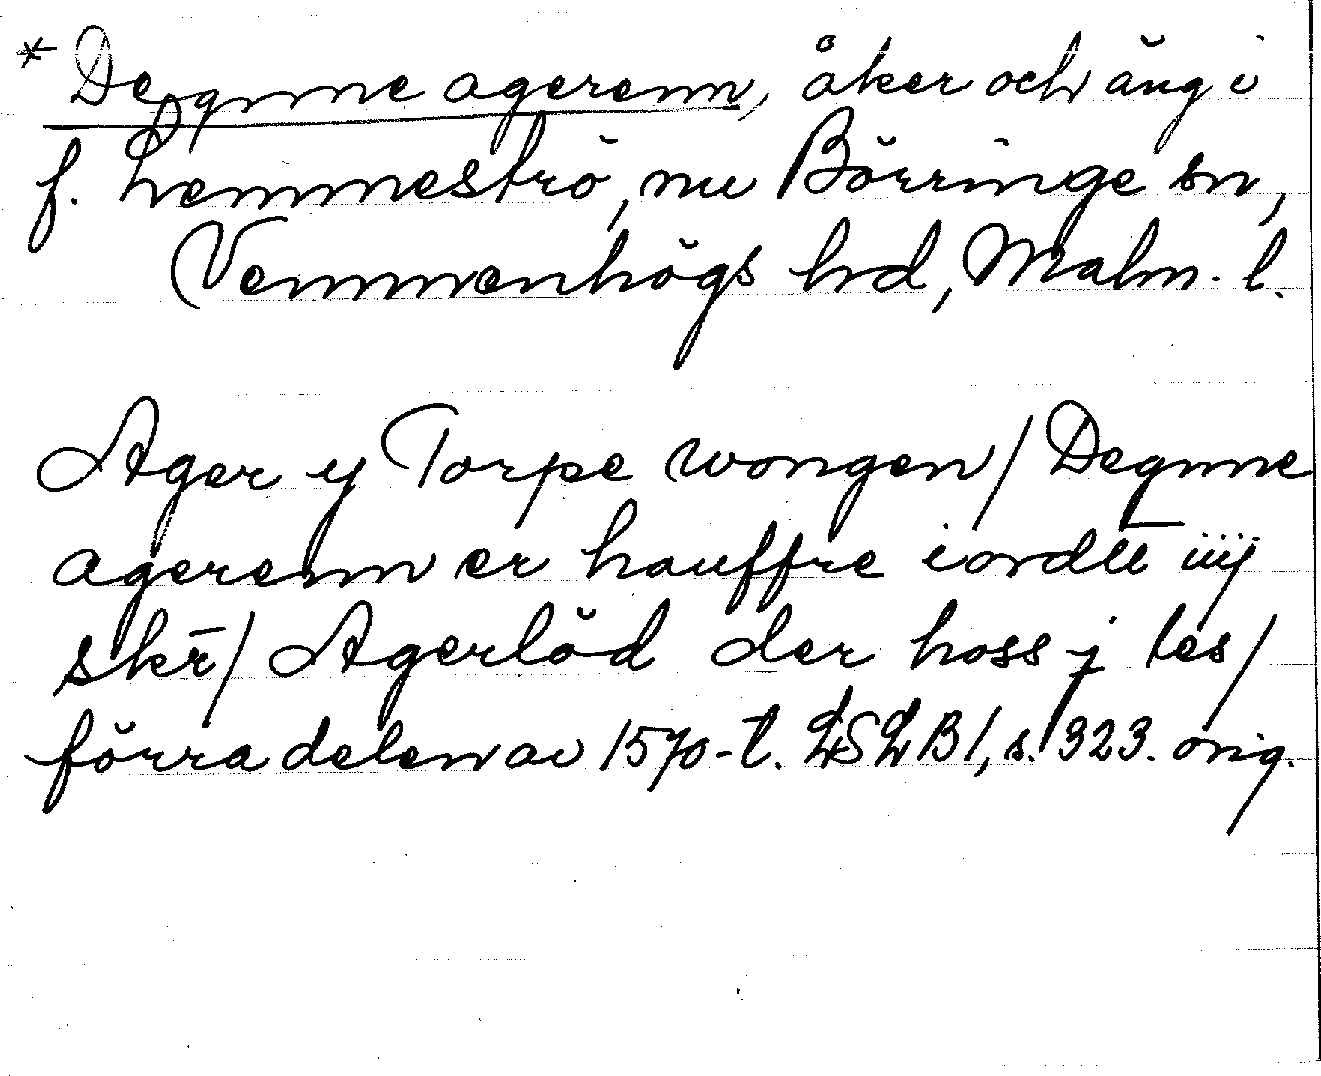 * Degnne agerenn, åker och äng i
f. Lemmeströ, nu Börringe sn,
Vemmenhögs hd, Malm. l.
Ager y Torpe wongen / Degnne
agerenn er hauffre iordtt iiij
skr̄ / Agerlöd der hoss j les /
förra delen av 1570-t. LSLB 1, s. 323. orig.